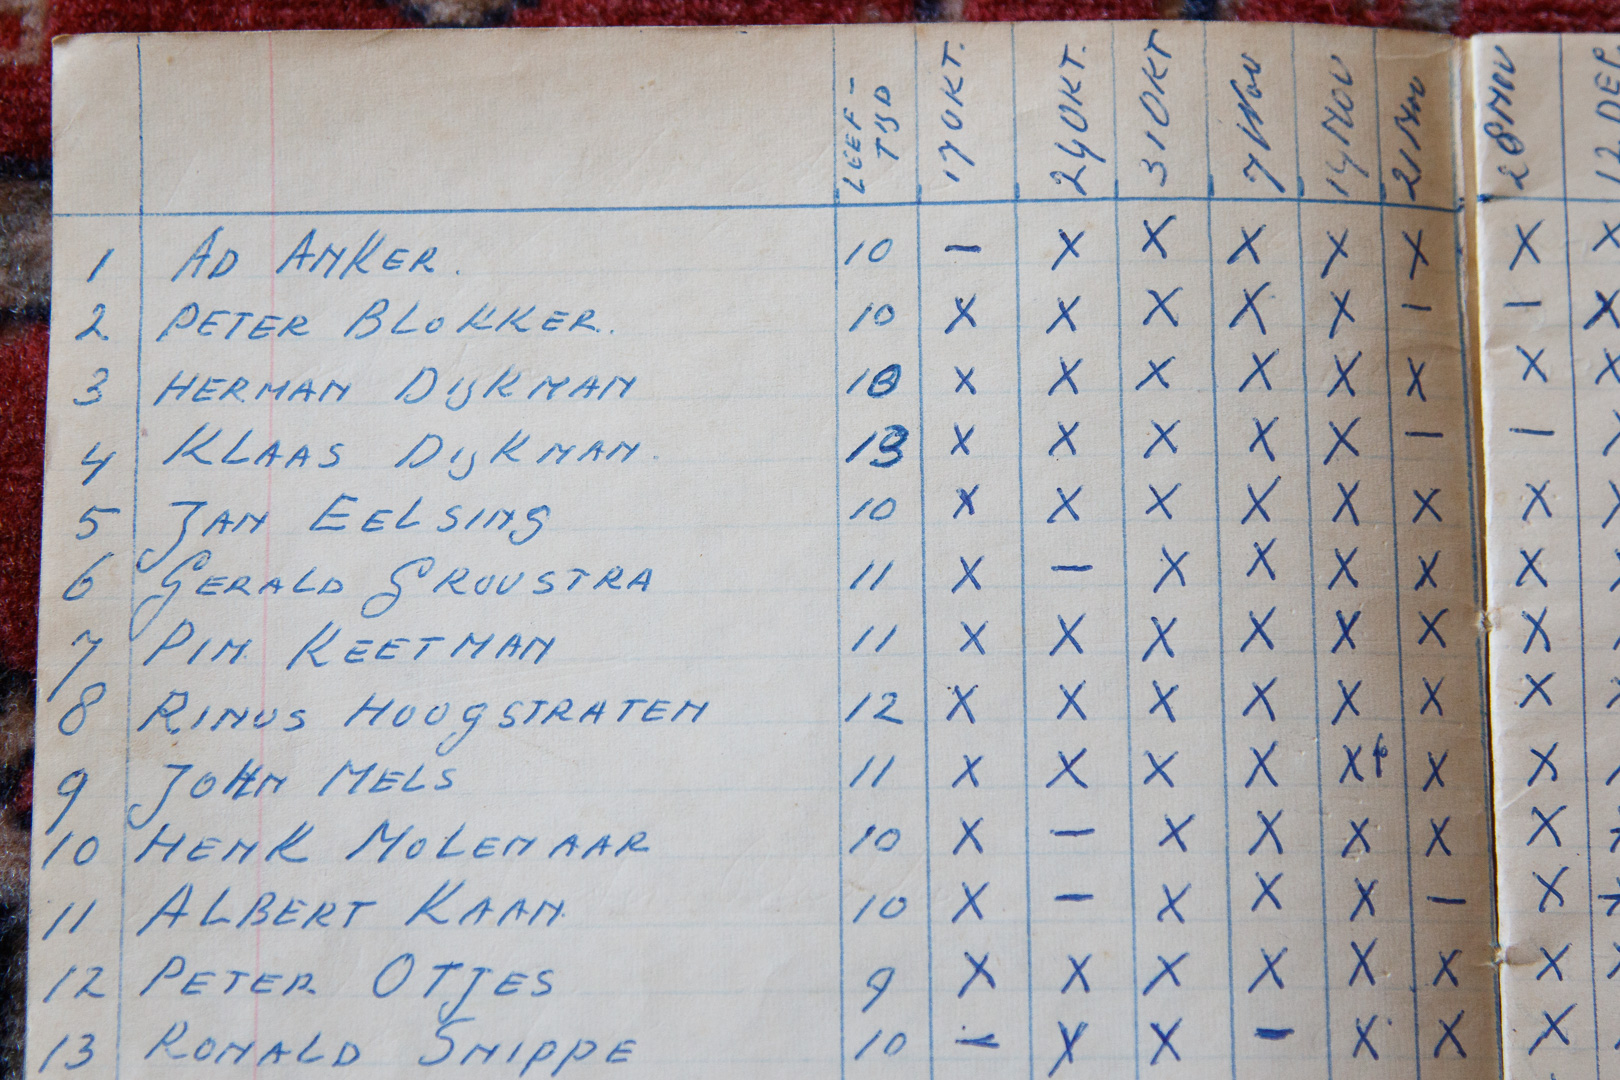 LEEF-TIJD 17 OKT. 24 OKT. 31 OKT 7 Nov 14 NOV 21 NOV 28 NOV 12 DEC
1 AD ANKER. 10 — X X X X X X X
2 PETER BLOKKER. 10 X X X X X — — X
3 HERMAN DijKMAN 10 X X X X X X X X
4 KLAAS DijKMAN. 13 X X X X X — —
5 JAN EELSING 10 X X X X X X X
6 GERALD GROUSTRA 11 X — X X X X X
7 PIM KEETMAN 11 X X X X X X X
8 RINUS HOOGSTRATEN 12 X X X X X X X
9 JOHN MELS 11 X X X X X X X
10 HENK MOLENAAR 10 X — X X X X X
11 ALBERT KAAN 10 X — X X X — X
12 PETER OTJES 9 X X X X X X X
13 RONALD SNIPPE 10 — X X — X X X